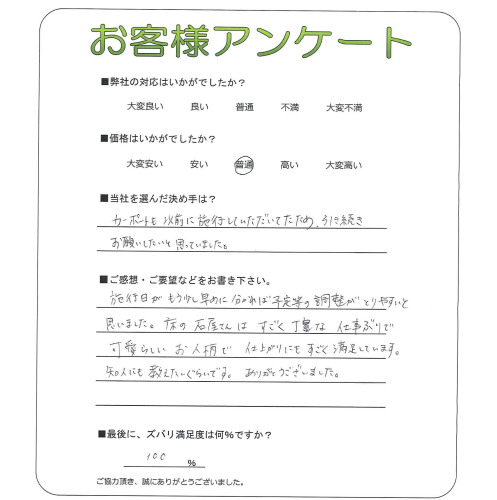 お客様アンケート
■弊社の対応はいかがでしたか？
大変良い 良い 普通 不満 大変不満
■価格はいかがでしたか？
大変安い 安い 普通 高い 大変高い
■当社を選んだ決め手は？
カーポートも以前に施行していただいてたため、引き続き
お願いしたいと思っていました。
■ご感想・ご要望などをお書き下さい。
施行日がもう少し早めに分かれば予定等の調整がとりやすいと
思いました。床の石屋さんはすごく丁寧な仕事ぶりで
可愛らしいお人柄で仕上がりにもすごく満足しています。
知人にも教えたいぐらいです。ありがとうございました。
■最後に、ズバリ満足度は何％ですか？
100 %
ご協力頂き、誠にありがとうございました。